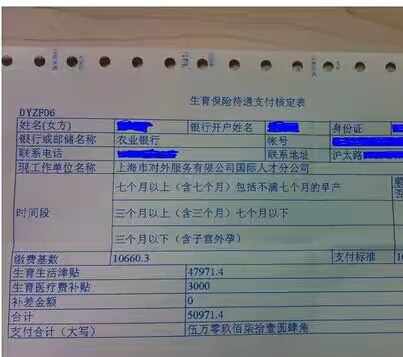 生育保险待遇支付核定表
DYZF06
姓名(女方) 银行开户姓名 身份证
银行或邮储名称 农业银行 帐号
联系电话 联系地址 沪太路
现工作单位名称 上海市对外服务有限公司国际人才分公司
时间段
七个月以上（含七个月）包括不满七个月的早产
三个月以上（含三个月）七个月以下
三个月以下（含子宫外孕）
缴费基数 10660.3 支付标准
生育生活津贴 47971.4
生育医疗费补贴 3000
补差金额 0
合计 50971.4
支付合计（大写） 伍万零玖佰柒拾壹圆肆角